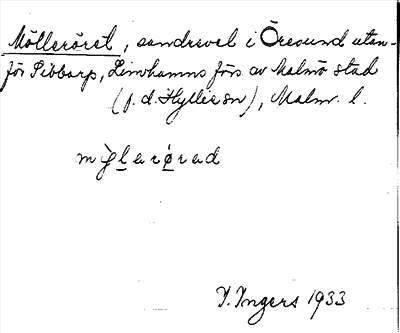 Mölleröret, sandrevel i Öresund utan-
för Sibbarp, Limhamns förs. av Malmö stad
(f. d. Hyllie sn), Malm. l.
møͅlarørad
I. Ingers 1933